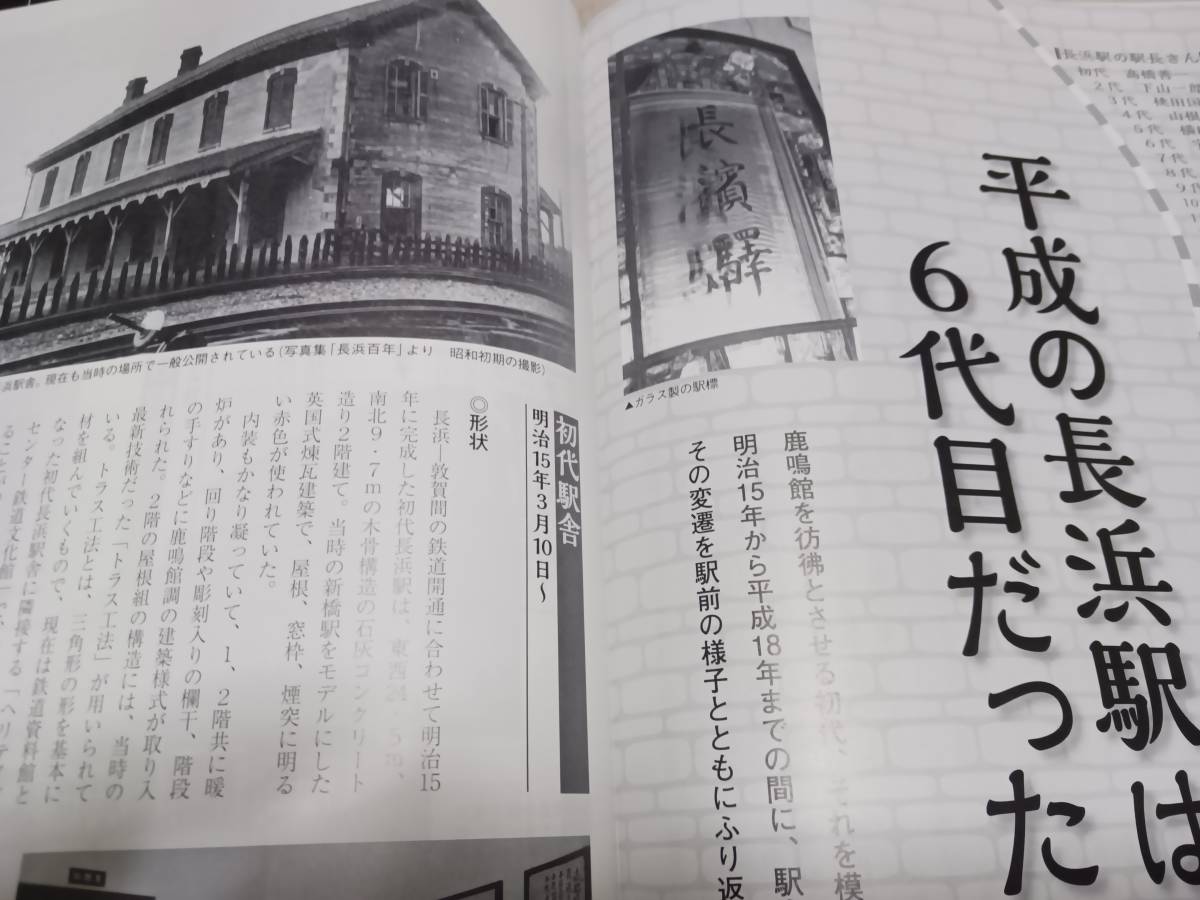 長浜駅の駅長さん
初代 高橋善一
2代 下山一郎
3代 桃田
4代 山樹
5代 橋
6代
7代
8代
9代
10
平成の長浜駅は
6代目だった
鹿鳴館を彷彿とさせる初代、それを模
明治15年から平成18年までの間に、駅
その変遷を駅前の様子とともにふり返
長濱驛
▲ガラス製の駅標
浜駅舎。現在も当時の場所で一般公開されている(写真集「長浜百年」より 昭和初期の撮影)
初代駅舎
明治15年3月10日〜
◎形状
長浜―敦賀間の鉄道開通に合わせて明治15
年に完成した初代長浜駅は、東西24・5m、
南北9・7mの木骨構造の石灰コンクリート
造り2階建て。当時の新橋駅をモデルにした
英国式煉瓦建築で、屋根、窓枠、煙突に明る
い赤色が使われていた。
内装もかなり凝っていて、1、2階共に暖
炉があり、回り階段や彫刻入りの欄干、階段
の手すりなどに鹿鳴館調の建築様式が取り入
れられた。2階の屋根組の構造には、当時の
最新技術だった「トラス工法」が用いられて
いる。トラス工法とは、三角形の形を基本に
材を組んでいくもので、現在は鉄道資料館と
なった初代長浜駅舎に隣接する「ヘリテ
センター鉄道文化館」で、
ることが